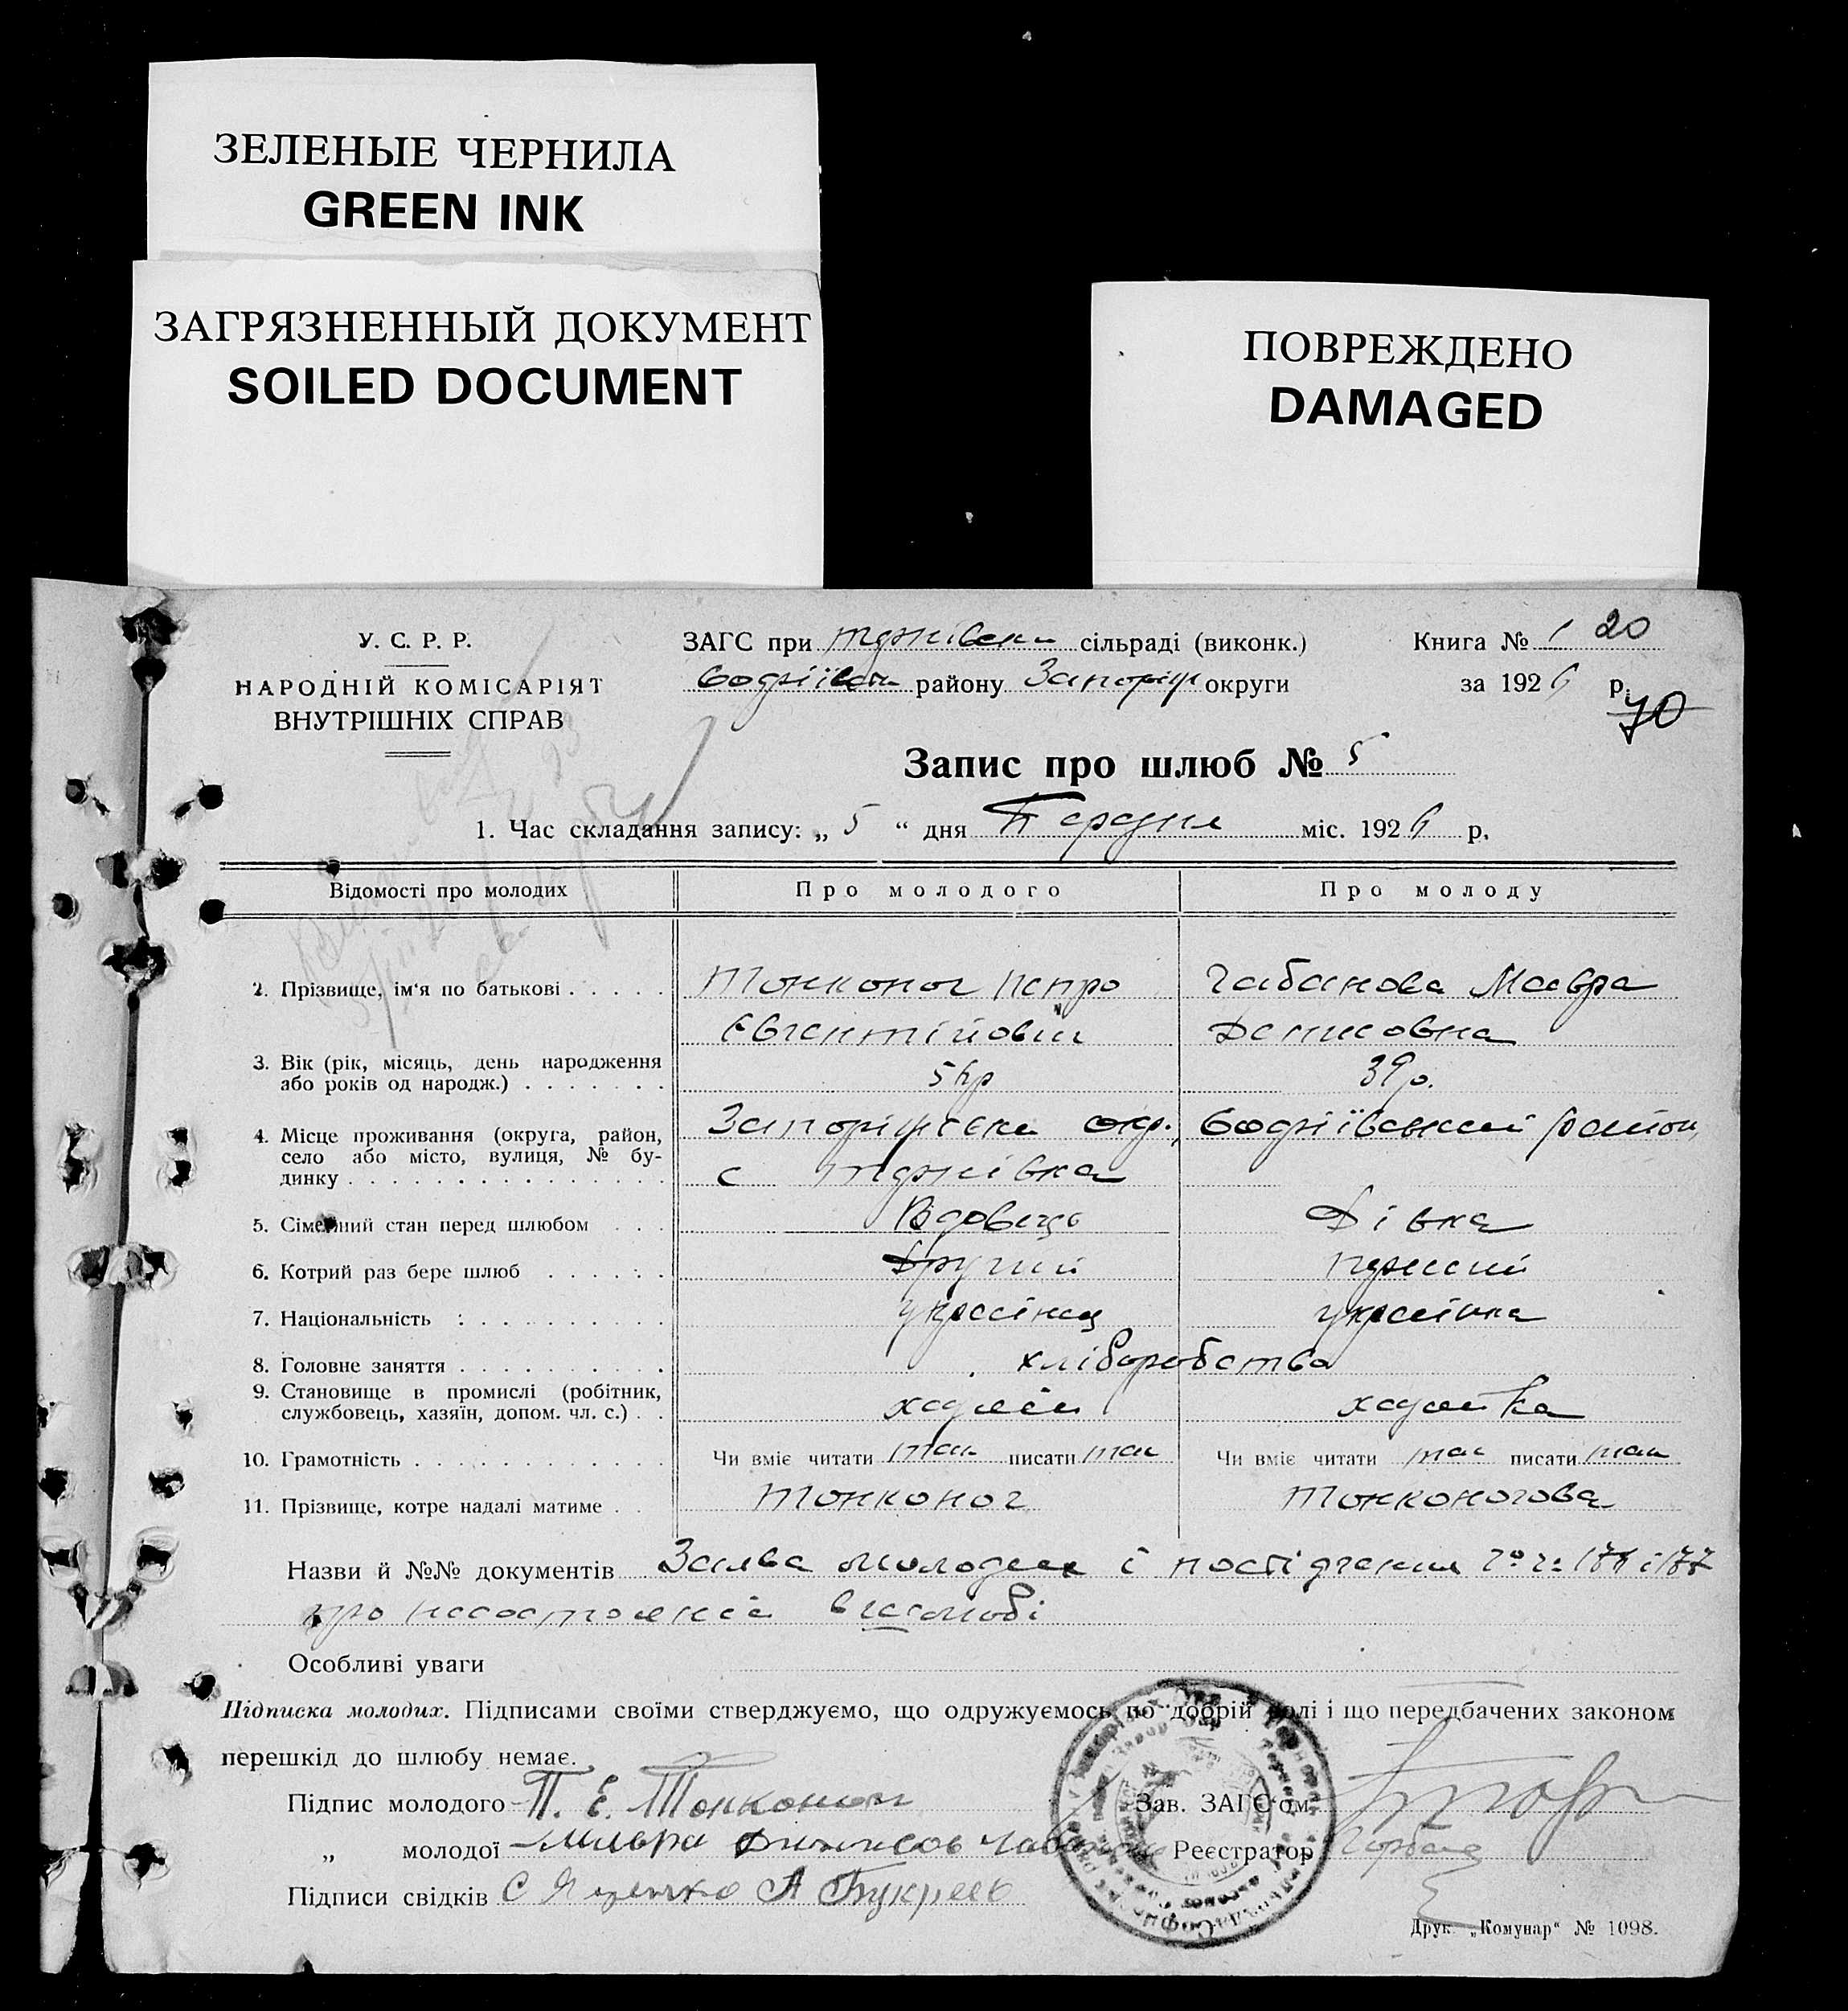 ЗЕЛЕНЫЕ ЧЕРНИЛА
GREEN INK
ЗАГРЯЗНЕННЫЙ ДОКУМЕНТ
SOILED DOCUMENT
ПОВРЕЖДЕНО
DAMAGED
У. С. Р. Р.
НАРОДНІЙ КОМІСАРІЯТ
ВНУТРІШНІХ СПРАВ
ЗАГС при сільраді (виконк.)
району Запоріц округи
Книга № 1 20
за 1926 р.
70
Запис про шлюб № 5
1. Час складання запису: „ 5 “ дня міс. 1926 р.
Відомості про молодих Про молодого Про молоду
2. Прізвище, ім'я по батькові Тонконог Петро Чабанова Мавра
Євгентійович Денисовна
3. Вік (рік, місяць, день народження
або років од народж.) 39 р.
4. Місце проживання (округа, район, окр., район,
село або місто, вулиця, № бу- с
динку
5. Сімейний стан перед шлюбом Вдовець Дівка
6. Котрий раз бере шлюб Другий перший
7. Національність українец українка
8. Головне заняття хліборобство
9. Становище в промислі (робітник,
службовець, хазяїн, допом. чл. с.) хазяїн хазяйка
10. Грамотність Чи вміє читати так писати так Чи вміє читати так писати так
11. Прізвище, котре надалі матиме Тонконог Тонконогова
Назви й №№ документів Заява молодих і посвідчення і 177
про
Особливі уваги
Підписка молодих. Підписами своїми стверджуємо, що одружуємось по добрій волі і що передбачених законом
перешкід до шлюбу немає.
Підпис молодого П. Е. Тонконог
Зав. ЗАГС'ом
„ молодої Мавра Денисов
Реєстратор
Підписи свідків С Яценко А Букреев
Друк. „Комунар“ № 1098.